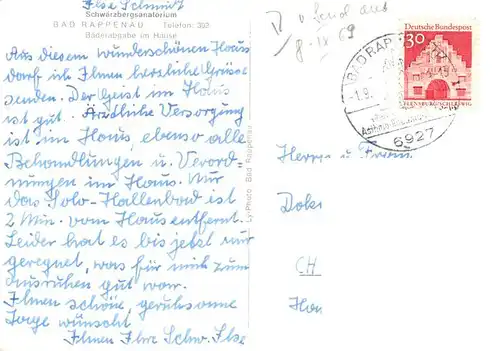 Ilse Schmidt
Schwärzbergsanatorium
BAD RAPPENAU Telefon: 393
Bäderabgabe im Hause
Aus diesem wunderschönen Haus
darf ich Ihnen herzliche Grüsse
senden. Der Geist im Haus
ist gut. Ärztliche Versorgung
ist im Haus, ebenso alle
Behandlungen u. Verord-
nungen im Haus. Nur
das Solo-Hallenbad ist
2 Min. vom Haus entfernt.
Leider hat es bis jetzt nur
geregnet, was für mich zum
ausruhen gut war.
Ihnen schöne, geruhsame
Tage wünscht
Ihnen Ihre Schw. Ilse
Ly-Photo Bad Rappenau
8 IX 69
Deutsche Bundespost
30
FLENSBURG/SCHLESWIG
BAD RAPPENAU
6927
Herrn u Frau
CH